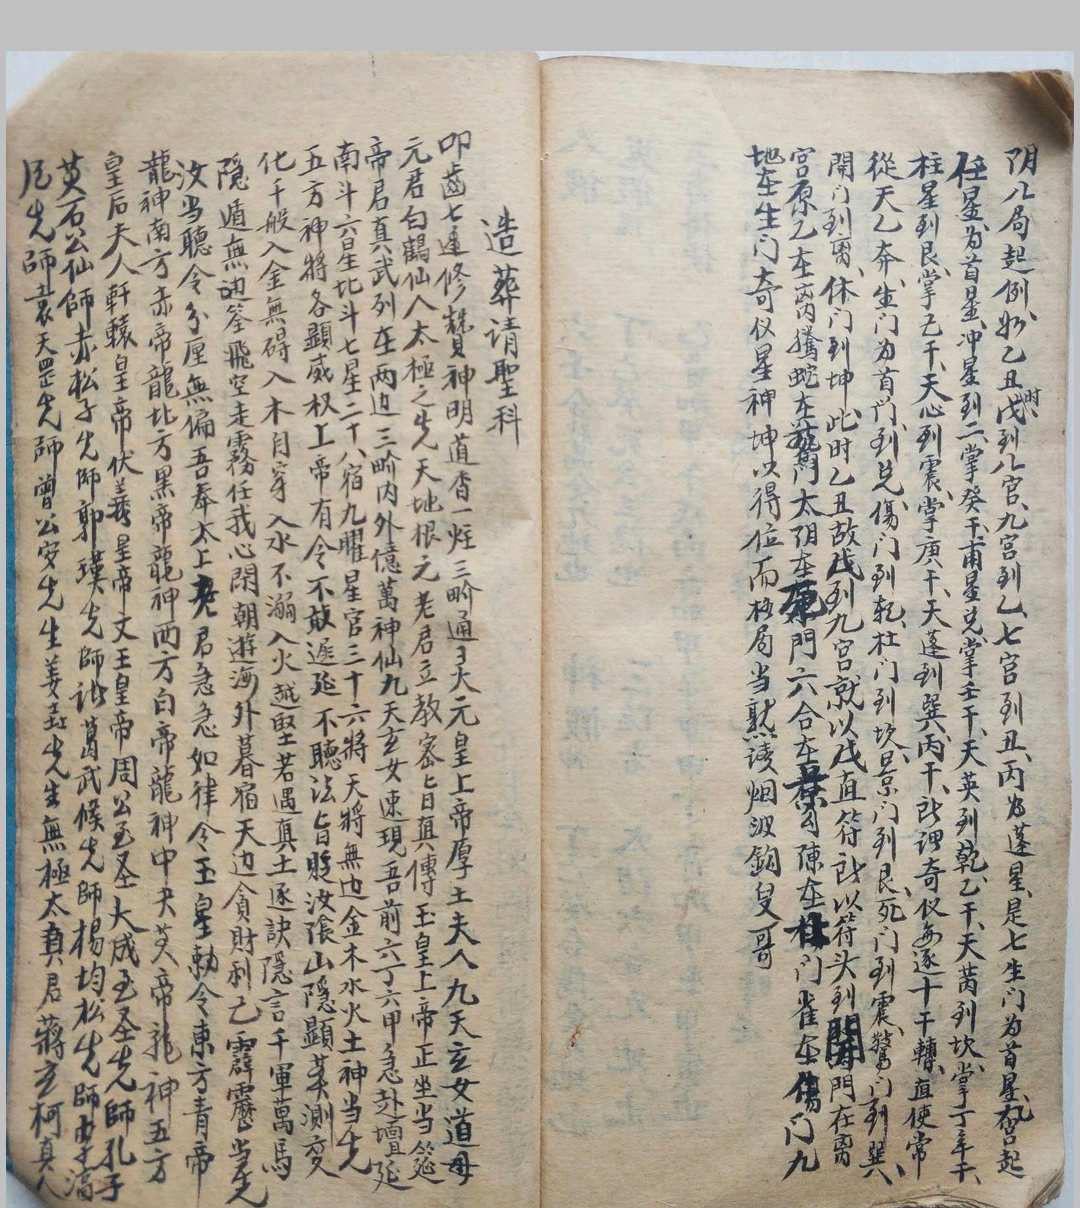 阴八局起例、如乙丑時、戊到八宫、九宫到乙、七宫到丑、丙为蓬星、是七生门为首星、九宫起
任星、为首星、冲星到二、掌癸干、甫星兑、掌壬干、天英到乾、乙干、天芮到坎、掌丁年干、
柱星到艮、掌己干、天心到震、掌庚干、天蓬到巽、丙干、此谓奇仪每逐十干轉、直使常
從天乙奔、生门为首门、到兑、傷门到乾、杜门到坎、景门到艮、死门到震、驚门到巽、
開门到离、休门到坤、此时乙丑故戊到九宫就以戊直符、改以符头到開門在离
宫、原乙在离、騰蛇在驚門、太阴在死門、六合在景、勾陳在杜门、雀在傷门、九
地在生门、奇仪星神坤以得位、而格局当熟读烟波釣叟哥
造葬请聖科
叩齒七通修讚神明道香一炷三畍通了天元皇上帝厚土夫人九天玄女道母
元君白鶴仙人太極之先天地根元老君立教密旨真傳玉皇上帝正坐当筵
帝君真武列在两边三畍内外億萬神仙九天玄女速現吾前六丁六甲急赴壇延
南斗六星北斗七星二十八宿九曜星官三十六將天將無边金木水火土神当先
五方神將各顯威权上帝有令不敢遲延不聽法旨貶汝張山隱顯莫測变
化千般入金無碍入木自穿入水不溺入火越堅若遇真土逐訣隱言千軍萬馬
隱遁無边筌飛空走霧任我心閑朝遊海外暮宿天边貪財利己霹靂当先
汝当聽令分厘無偏吾奉太上老君急急如律令玉皇勅令東方青帝
龍神南方赤帝龍北方黑帝龍神西方白帝龍神中央黄帝龍神五方
皇后夫人軒轅皇帝伏羲星帝文王皇帝周公至圣大成至圣先師孔子
黄石公仙師赤松子先師郭璞先師諸葛武候先師楊均松先師李淳
風先師袁天罡先師曾公安先生姜先生無極太真君蔣玄柯真人